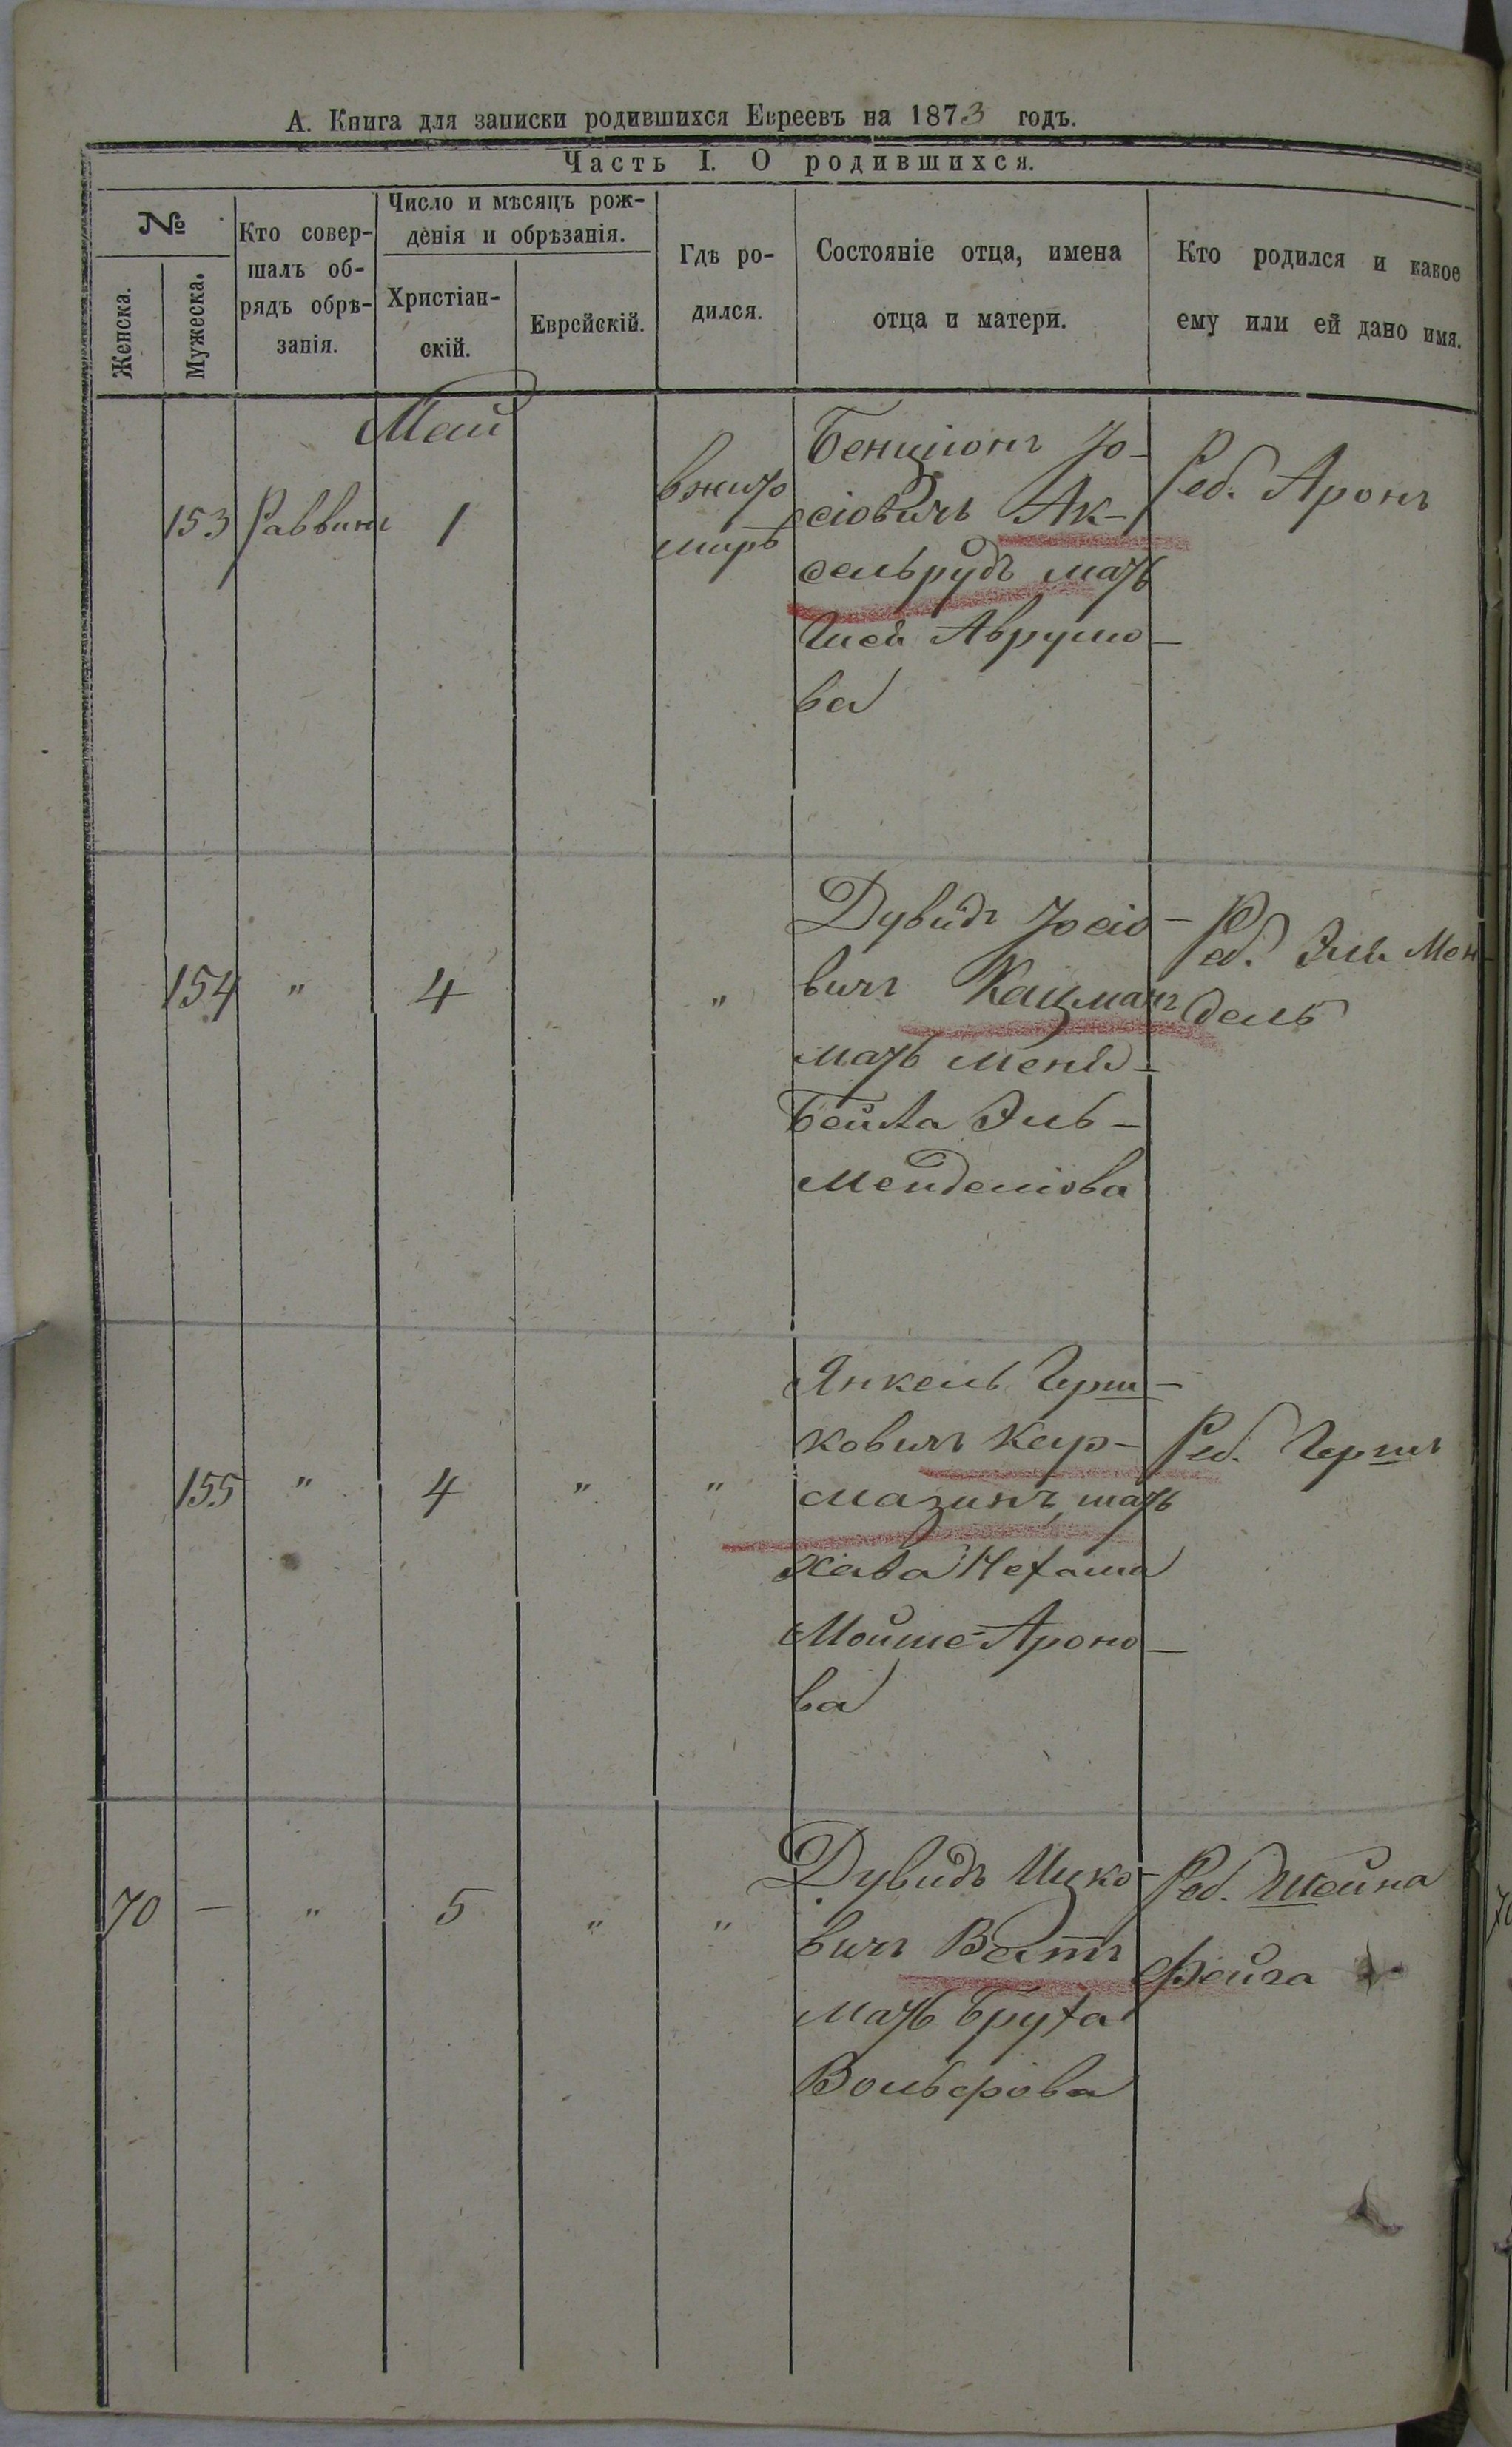 А. Книга для записки родившихся Евреевъ на 1873 годъ.
Часть I. О родившихся.
№
Женска.
Мужеска.
Кто совер-
шалъ об-
рядъ обрѣ-
занія.
Число и мѣсяцъ рож-
денія и обрѣзанія.
Христіан-
скій.
Еврейскій.
Гдѣ ро-
дился.
Состояніе отца, имена
отца и матери.
Кто родился и какое
ему или ей дано имя.
Май
153 Раввинъ 1
в жито
мирѣ
Бенціонъ Іо-
сіовичъ Ак-
сельрудъ мать
Аврумо-
ва
Реб. Аронъ
154 " 4 "
Дувидъ Іосіо-
вичъ Кацманъ
мать Меня-
Бейла Эль-
Менделіова
Реб. Эль Мен-
дель
155 " 4 " "
Янкель Герш-
ковичъ Кар-
мазинъ, мать
Хава Нехама
Мойше-Ароно-
ва
Реб. Гершъ
70 — " 5 " "
Дувидъ Ицко-
вичъ Ватъ
мать Бруха
Вольфова
Реб. Шейна
Фейга